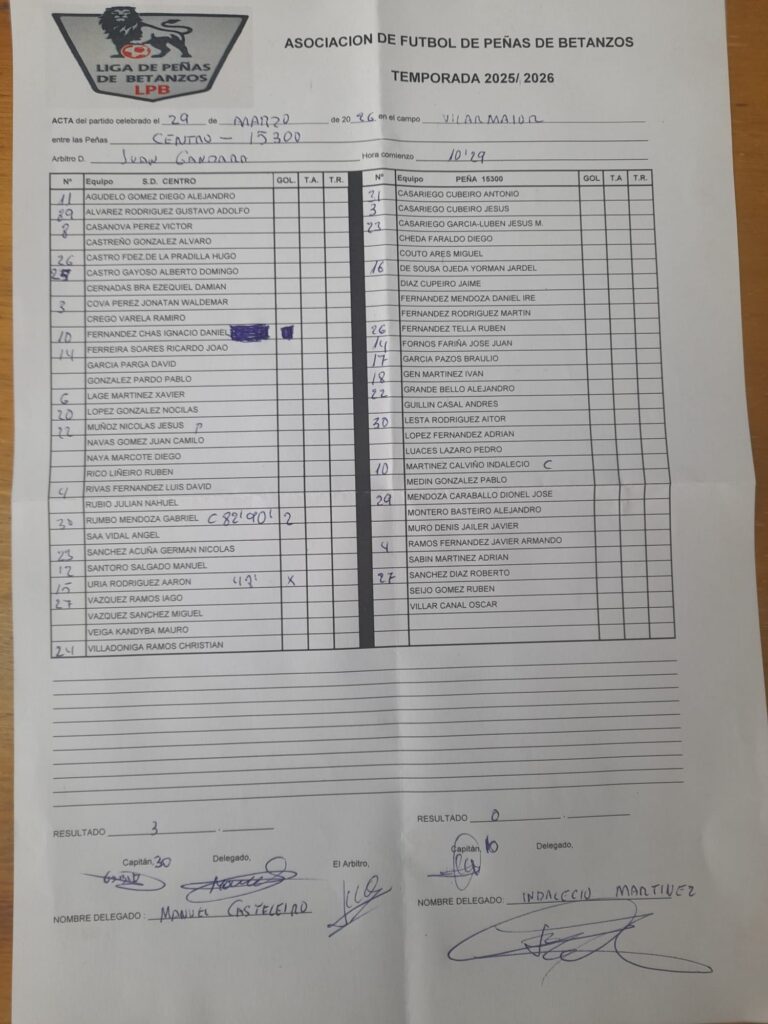 LIGA DE PEÑAS
DE BETANZOS
LPB
ASOCIACION DE FUTBOL DE PEÑAS DE BETANZOS
TEMPORADA 2025/ 2026
ACTA del partido celebrado el 29 de MARZO de 2026 en el campo VILARMAIOR
entre las Peñas CENTRO - 15300
Arbitro D. JUAN GANDARA Hora comienzo 10'29
Nº Equipo S.D. CENTRO GOL. T.A. T.R.
11 AGUDELO GOMEZ DIEGO ALEJANDRO
89 ALVAREZ RODRIGUEZ GUSTAVO ADOLFO
8 CASANOVA PEREZ VICTOR
CASTREÑO GONZALEZ ALVARO
26 CASTRO FDEZ.DE LA PRADILLA HUGO
CASTRO GAYOSO ALBERTO DOMINGO
CERNADAS BRA EZEQUIEL DAMIAN
3 COVA PEREZ JONATAN WALDEMAR
CREGO VARELA RAMIRO
10 FERNANDEZ CHAS IGNACIO DANIEL
14 FERREIRA SOARES RICARDO JOAO
GARCIA PARGA DAVID
GONZALEZ PARDO PABLO
6 LAGE MARTINEZ XAVIER
20 LOPEZ GONZALEZ NOCILAS
22 MUÑOZ NICOLAS JESUS P
NAVAS GOMEZ JUAN CAMILO
NAYA MARCOTE DIEGO
RICO LIÑEIRO RUBEN
4 RIVAS FERNANDEZ LUIS DAVID
RUBIO JULIAN NAHUEL
30 RUMBO MENDOZA GABRIEL C 82' 90' 2
SAA VIDAL ANGEL
23 SANCHEZ ACUÑA GERMAN NICOLAS
12 SANTORO SALGADO MANUEL
15 URIA RODRIGUEZ AARON X
27 VAZQUEZ RAMOS IAGO
VAZQUEZ SANCHEZ MIGUEL
VEIGA KANDYBA MAURO
24 VILLADONIGA RAMOS CHRISTIAN
Nº Equipo PEÑA 15300 GOL T.A T.R.
21 CASARIEGO CUBEIRO ANTONIO
3 CASARIEGO CUBEIRO JESUS
23 CASARIEGO GARCIA-LUBEN JESUS M.
CHEDA FARALDO DIEGO
COUTO ARES MIGUEL
16 DE SOUSA OJEDA YORMAN JARDEL
DIAZ CUPEIRO JAIME
FERNANDEZ MENDOZA DANIEL IRE
FERNANDEZ RODRIGUEZ MARTIN
26 FERNANDEZ TELLA RUBEN
14 FORNOS FARIÑA JOSE JUAN
17 GARCIA PAZOS BRAULIO
18 GEN MARTINEZ IVAN
22 GRANDE BELLO ALEJANDRO
GUILLIN CASAL ANDRES
30 LESTA RODRIGUEZ AITOR
LOPEZ FERNANDEZ ADRIAN
LUACES LAZARO PEDRO
10 MARTINEZ CALVIÑO INDALECIO C
MEDIN GONZALEZ PABLO
29 MENDOZA CARABALLO DIONEL JOSE
MONTERO BASTEIRO ALEJANDRO
MURO DENIS JAILER JAVIER
4 RAMOS FERNANDEZ JAVIER ARMANDO
SABIN MARTINEZ ADRIAN
27 SANCHEZ DIAZ ROBERTO
SEIJO GOMEZ RUBEN
VILLAR CANAL OSCAR
RESULTADO 3
Capitán, 30 Delegado, El Arbitro,
NOMBRE DELEGADO : MANUEL CASTELEIRO
RESULTADO 0
Capitán, 10 Delegado,
NOMBRE DELEGADO: INDALECIO MARTINEZ